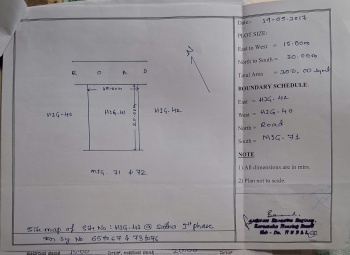 Date: 29-05-2017
PLOT SIZE:
East to West = 15.00m
North to South = 20.00m
Total Area = 300.00 sqmt
BOUNDARY SCHEDULE
East = HIG-42
West = HIG-40
North = Road
South = MIG-71
NOTE
1) All dimensions are in mtrs.
2) Plan not to scale.
R O A D
N
15.00m
HIG-40
HIG-41
20.00m
HIG-42
MIG. 71 & 72
Site map of Site No: HIG-41 @
phase
Sy No 65 to 67 & 73 to 76